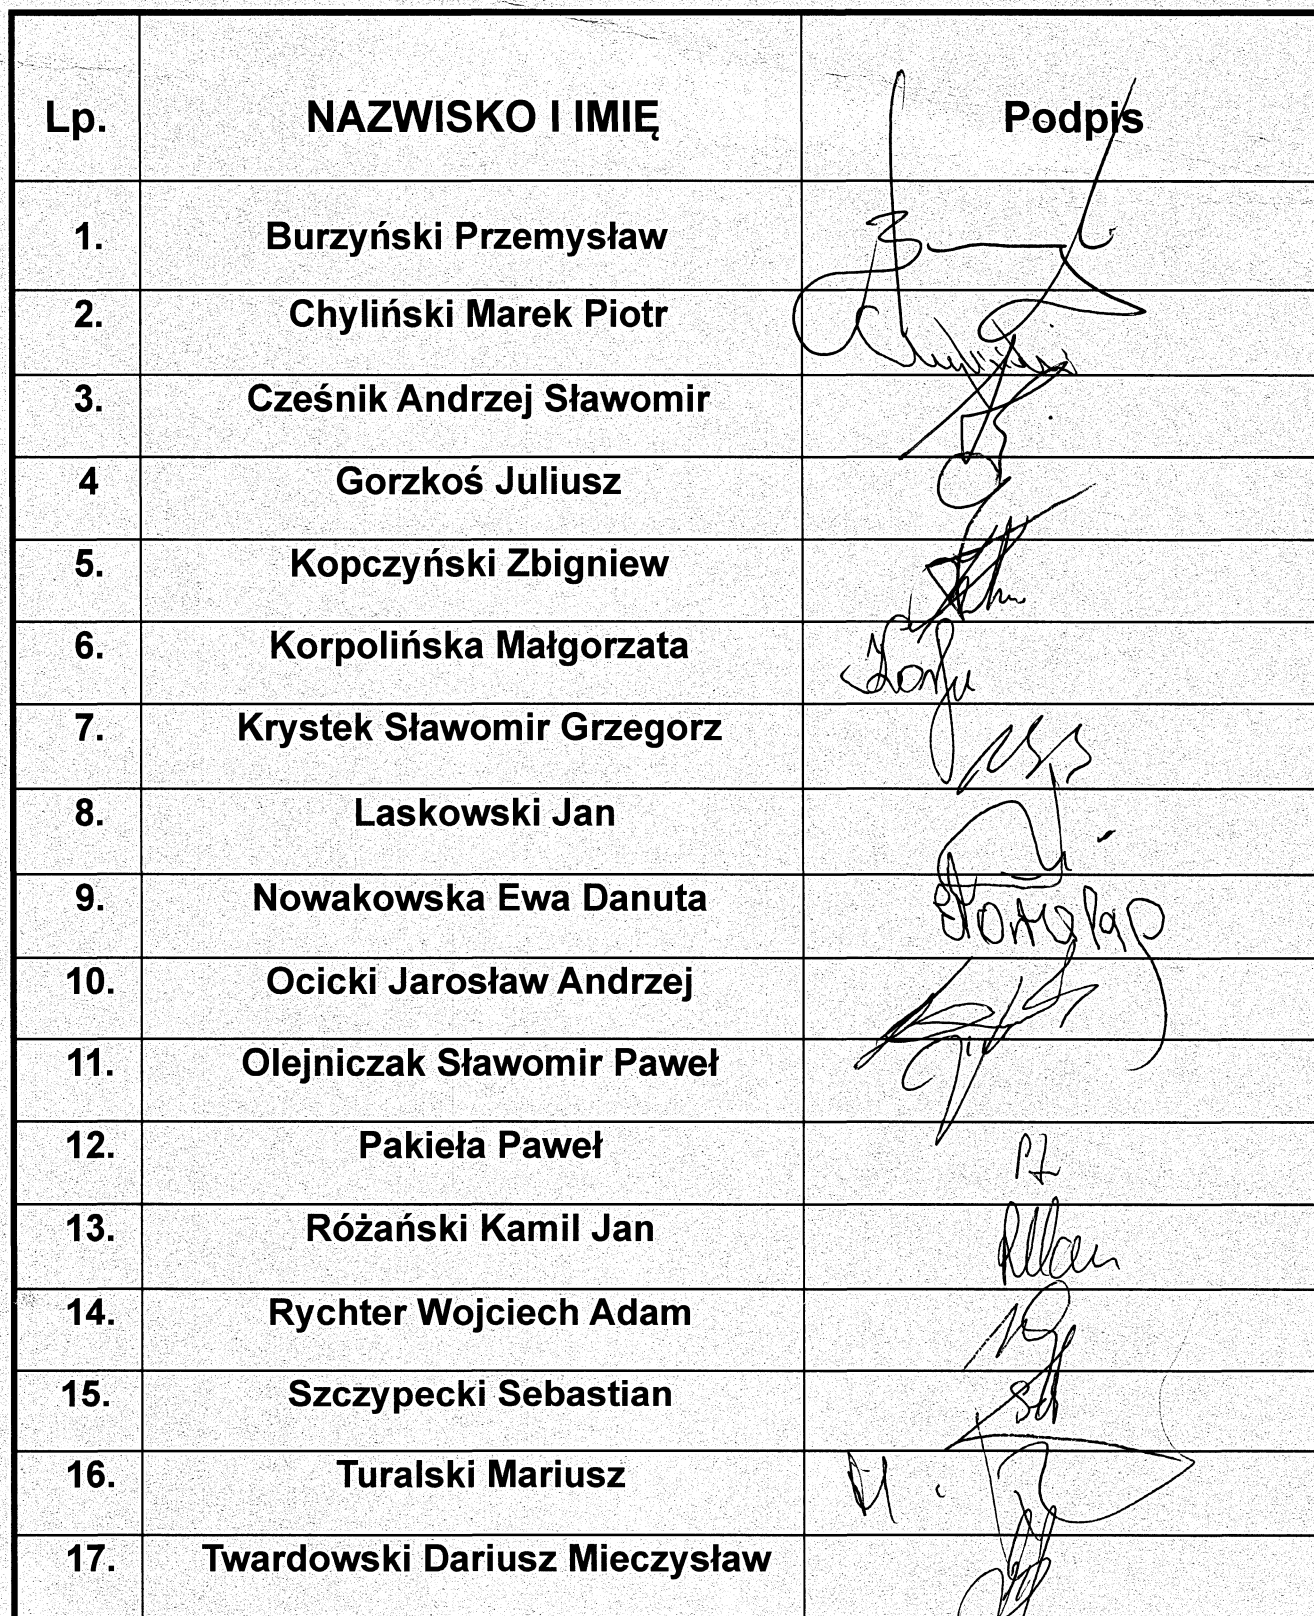 Lp. NAZWISKO I IMIĘ Podpis
1. Burzyński Przemysław
2. Chyliński Marek Piotr
3. Cześnik Andrzej Sławomir
4 Gorzkoś Juliusz
5. Kopczyński Zbigniew
6. Korpolińska Małgorzata
7. Krystek Sławomir Grzegorz
8. Laskowski Jan
9. Nowakowska Ewa Danuta
10. Ocicki Jarosław Andrzej
11. Olejniczak Sławomir Paweł
12. Pakieła Paweł
13. Różański Kamil Jan
14. Rychter Wojciech Adam
15. Szczypecki Sebastian
16. Turalski Mariusz
17. Twardowski Dariusz Mieczysław